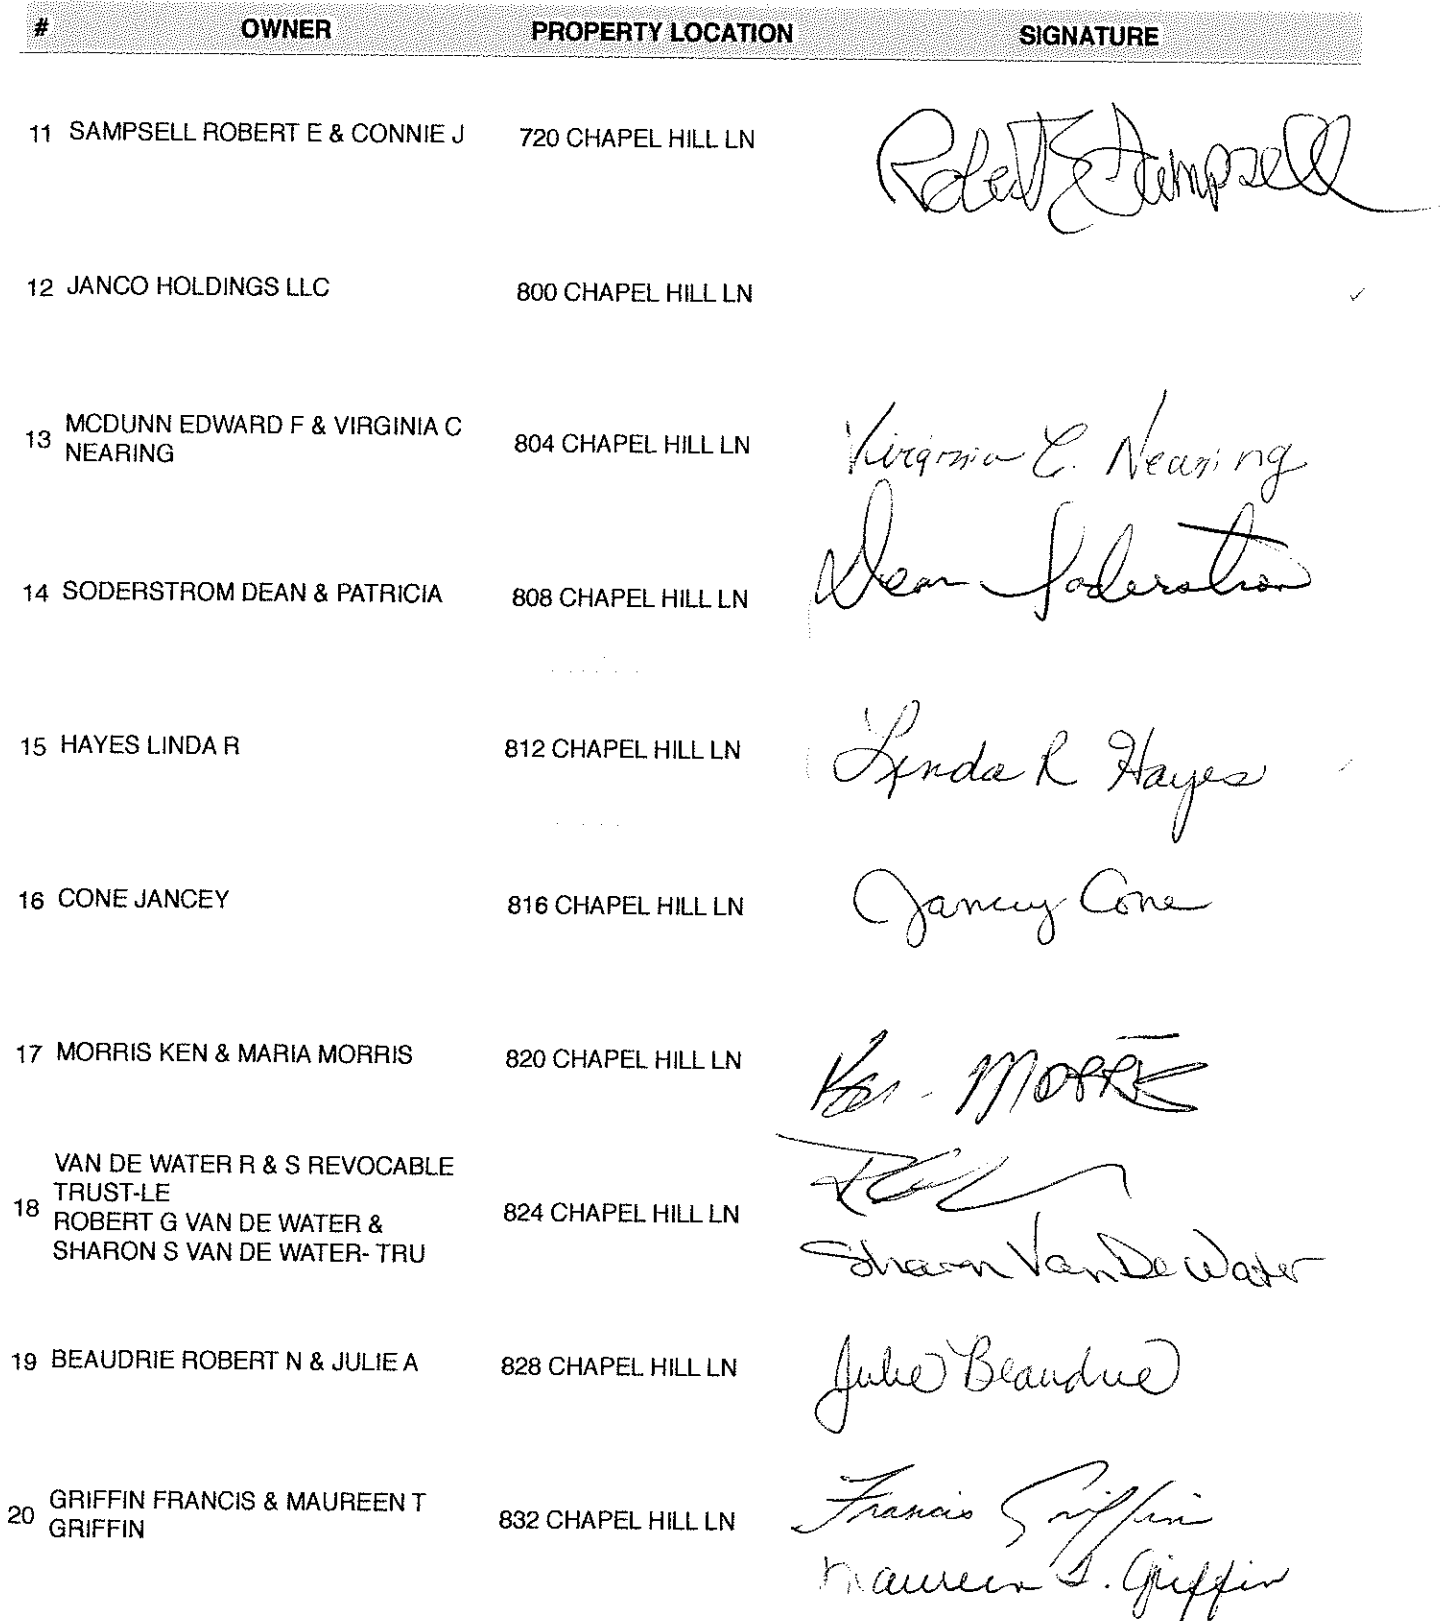 # OWNER PROPERTY LOCATION SIGNATURE
11 SAMPSELL ROBERT E & CONNIE J 720 CHAPEL HILL LN Robert E Sampsell
12 JANCO HOLDINGS LLC 800 CHAPEL HILL LN
13 MCDUNN EDWARD F & VIRGINIA C
NEARING 804 CHAPEL HILL LN Virginia C. Nearing
14 SODERSTROM DEAN & PATRICIA 808 CHAPEL HILL LN Dean Soderstrom
15 HAYES LINDA R 812 CHAPEL HILL LN Linda R Hayes
16 CONE JANCEY 816 CHAPEL HILL LN Jancey Cone
17 MORRIS KEN & MARIA MORRIS 820 CHAPEL HILL LN Ken MORRIS
18 VAN DE WATER R & S REVOCABLE
TRUST-LE
ROBERT G VAN DE WATER &
SHARON S VAN DE WATER- TRU 824 CHAPEL HILL LN
Sharon Van De Water
19 BEAUDRIE ROBERT N & JULIE A 828 CHAPEL HILL LN Julie Beaudrie
20 GRIFFIN FRANCIS & MAUREEN T
GRIFFIN 832 CHAPEL HILL LN Francis Griffin
Maureen T. Griffin